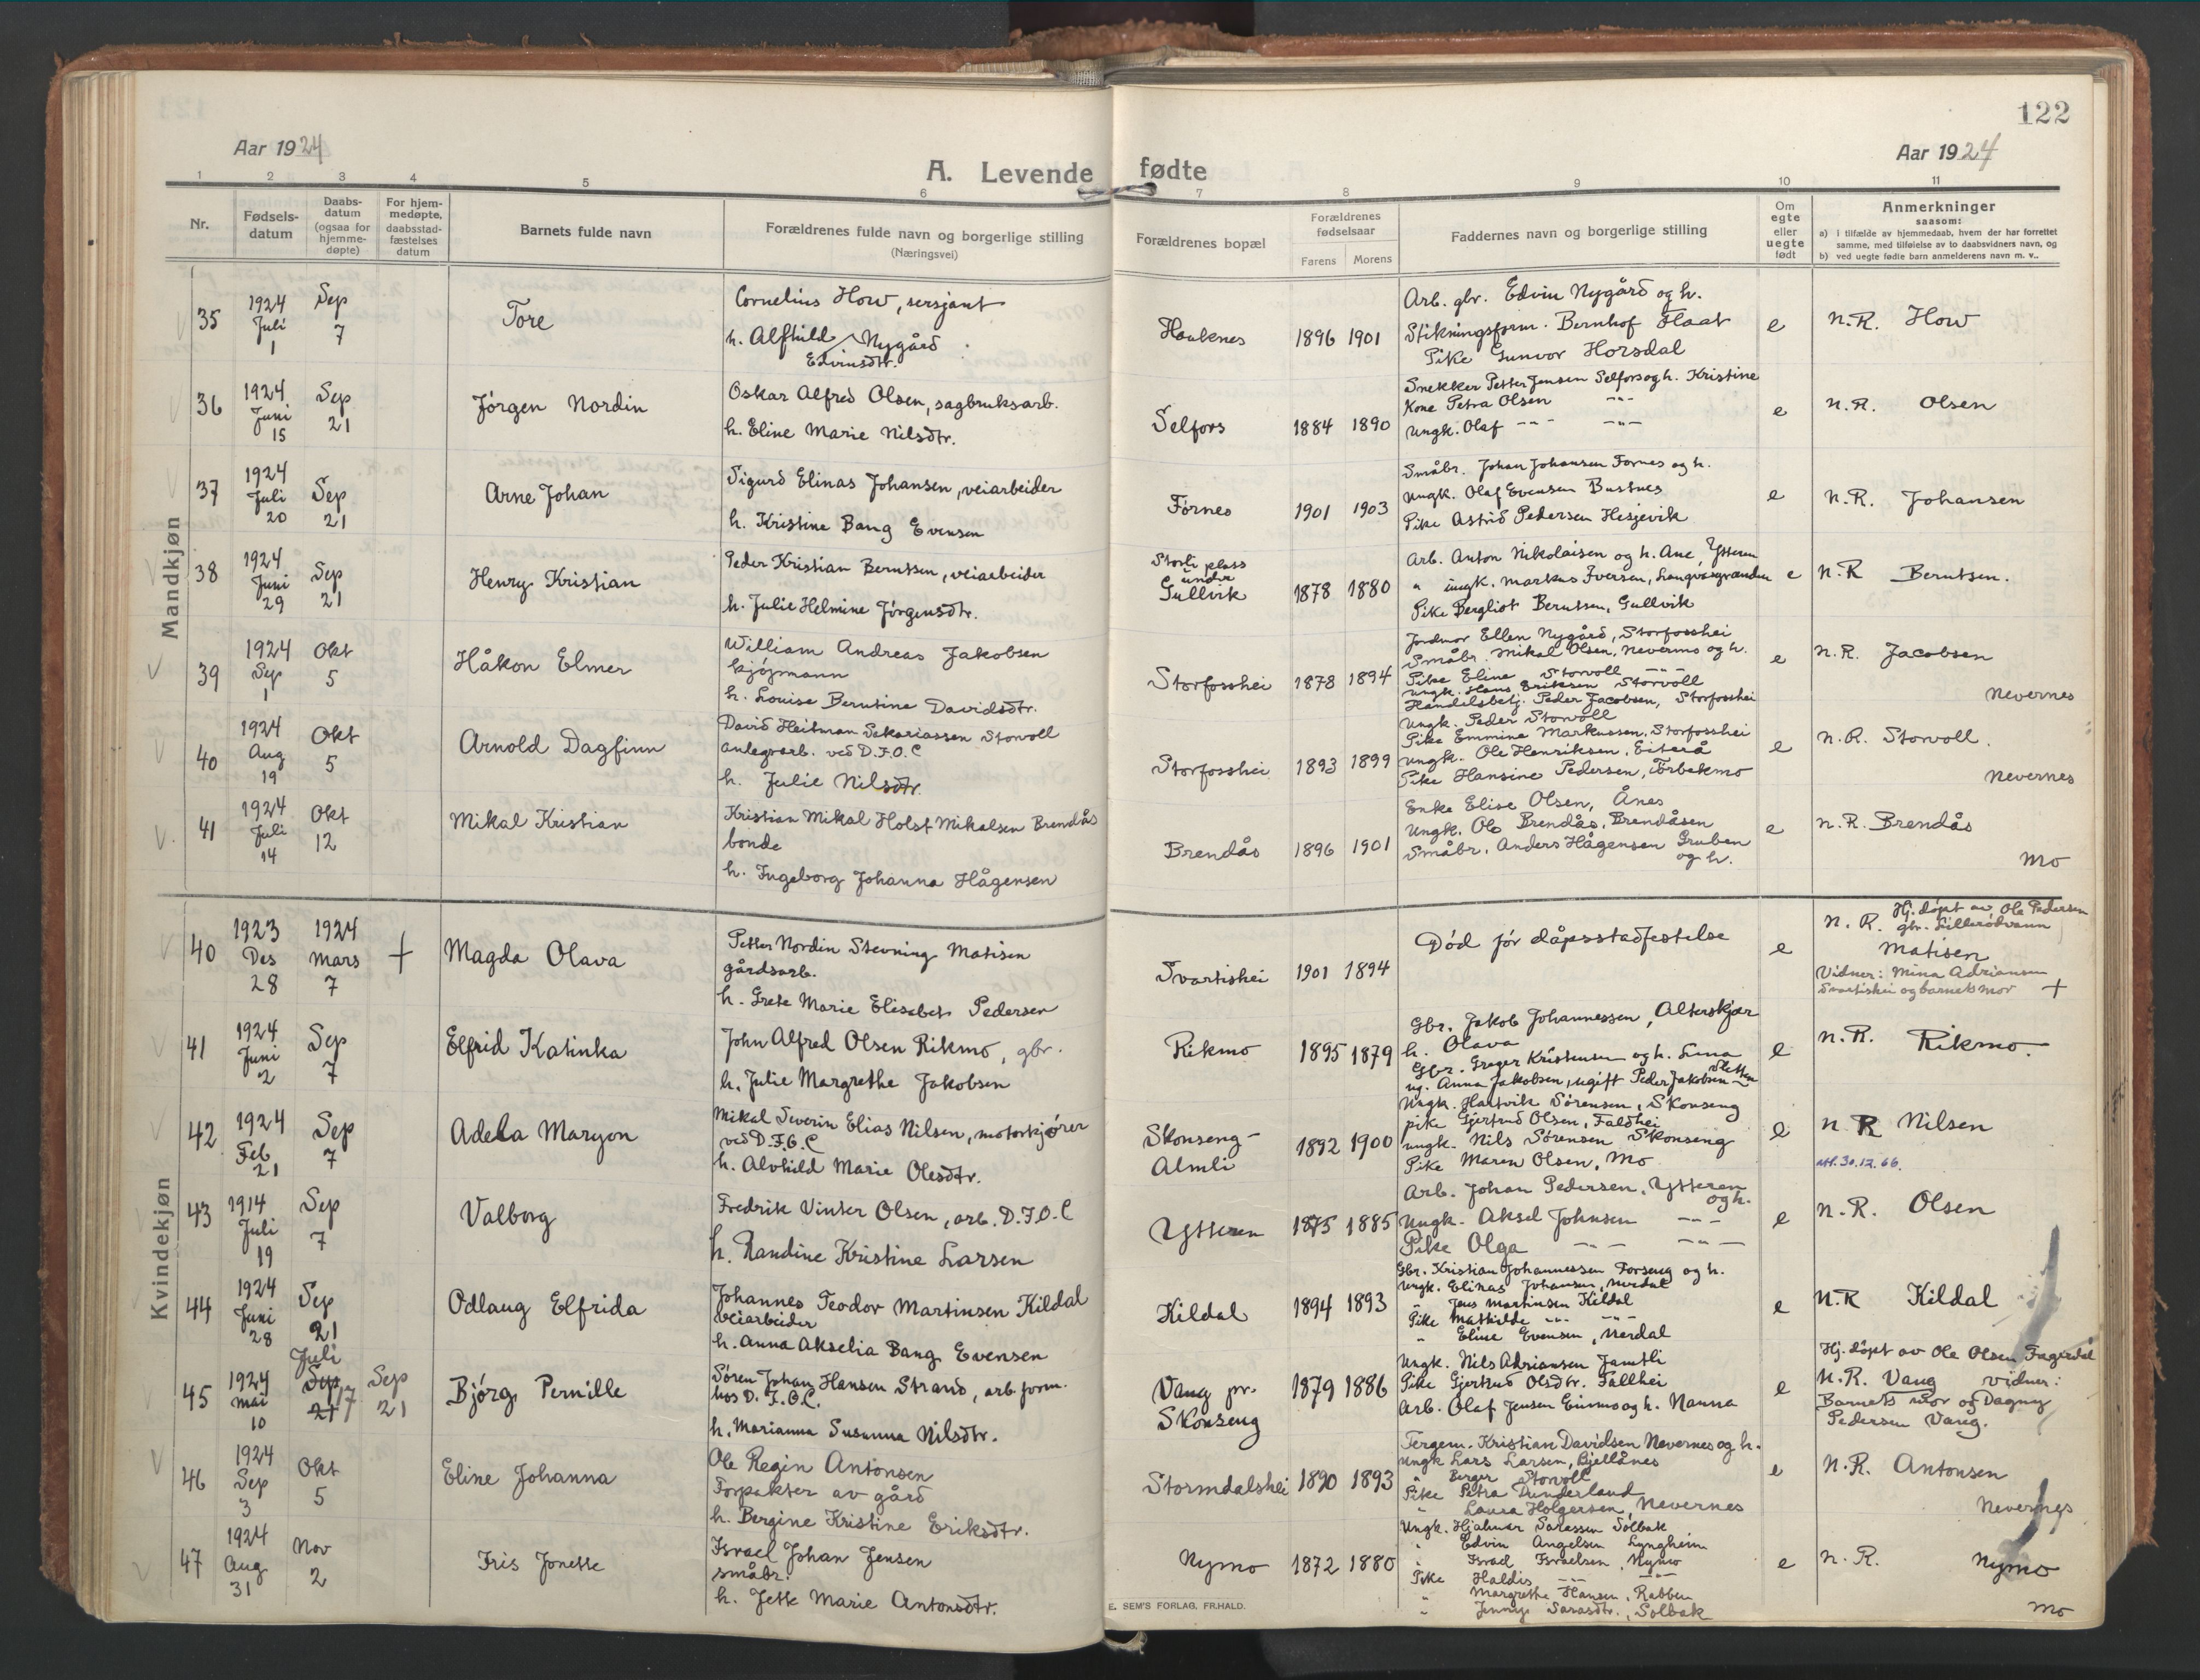 122
Aar 1924
A. Levende fødte
Aar 1924
1 2 3 4 5 6 7 8 9 10 11
Nr.
Fødsels-
datum
Daabs-
datum
(ogsaa for
hjemme-
døpte)
For hjem-
medøpte,
daabsstad-
fæstelses
datum
Barnets fulde navn
Forældrenes fulde navn og borgerlige stilling
(Næringsvei)
Forældrenes bopæl
Forældrenes
fødselsaar
Farens Morens
Faddernes navn og borgerlige stilling
Om
egte
eller
uegte
født
Anmerkninger
saasom:
a) i tilfælde av hjemmedaab, hvem der har forrettet
samme, med tilføielse av to daabsvidners navn, og
b) ved uegte fødte barn anmelderens navn m. v..
Mandkjøn
35
1924
Juli
1
Sep
7
Tore
Cornelius How, sersjant
h. Alfhild Nygård
Edvinsdtr.
Hauknes
1896 1901
Arb. gbr. Edvin Nygård og h.
Stikningsform. Bernhof Flaat
Pike Gunvor Horsdal
e
N.R. How
36
1924
Juni
15
Sep
21
Jørgen Nordin
Oskar Alfred Olsen, sagbruksarb.
h. Eline Marie Nilsdtr.
Selfors
1884 1890
Snekker Petter Jensen Selfors og h. Kristine
Kone Petra Olsen -"-
Ungk. Olaf -"- -"-
e
N.R. Olsen
37
1924
Juli
20
Sep
21
Arne Johan
Sigurd Elinas Johansen, veiarbeider
h. Kristine Bang Evensen
Fornes
1901 1903
Småbr. Johan Johansen Fornes og h.
Ungk. Olaf Evensen Bustnes
Pike Astrid Pedersen Hesjevik
e
N.R. Johansen
38
1924
Juni
29
Sep
21
Henry Kristian
Peder Kristian Berntsen, veiarbeider
h. Julie Helmine Jørgensdtr.
Storli plass
under
Gullvik
1878 1880
Arb. Anton Nikolaisen og h. Ane, Ytteren
" ungk. Markus Iversen, Langvasgrænden
Pike Bergliot Berntsen, Gullvik
e
N.R Berntsen.
39
1924
Sep
1
Okt
5
Håkon Elmer
William Andreas Jakobsen
kjøpmann
h. Louise Berntine Davidsdtr.
Storfosshei
1878 1894
Jordmor Ellen Nygård, Storfosshei
Småbr. Mikal Olsen, Nevernes og h.
Pike Eline Storvoll -"-
Ungk. Hans Eriksen Storvoll
Handelsbetj. Peder Jacobsen, Storfosshei
e
N.R. Jacobsen
Nevernes
40
1924
Aug
19
Okt
5
Arnold Dagfinn
David Heitman Sakariassen Storvoll
anlegsarb. ved D.F.O.C
h. Julie Nilsdtr.
Storfosshei
1893 1899
Ungk. Peder Storvoll
Pike Emmine Markussen, Storfosshei
Ungk. Ole Henriksen, Eiterå
Pike Hansine Pedersen, Forbekmo
e
N.R. Storvoll.
Nevernes
41
1924
Juli
14
Okt
12
Mikal Kristian
Kristian Mikal Holst Mikalsen Brendås
bonde
h. Ingeborg Johanna Hågensen
Brendås
1896 1901
Enke Elise Olsen, Ånes
Ungk. Ole Brendås, Brendåsen
Småbr. Anders Hågensen Gruben
og h.
e
N.R. Brendås
Mo
Kvindekjøn
40
1923
Des
28
1924
Mars
7
+
Magda Olava
Petter Nordin Stevning Matisen
gårdsarb.
h. Grete Marie Elisabet Pedersen
Svartishei
1901 1894
Død før dåpsstadfestelse
e
Hj. døpt av Ole Pedersen
N.R. gbr. Lillerødvann
Matisen
Vidner: Mina Adriansen
Svartishei og barnets mor +
41
1924
Juni
2
Sep
7
Elfrid Katinka
John Alfred Olsen Rikmo, gbr.
h. Julie Margrethe Jakobsen
Rikmo
1895 1879
Gbr. Jakob Johannessen, Alterskjær
h. Olava
Gbr. Greger Kristensen og h. Lina
Sletten
ug. Anna Jakobsen, ugift Peder Jakobsen -"-
e
N.R. Rikmo.
42
1924
Feb
21
Sep
7
Adela Maryon
Mikal Severin Elias Nilsen, motorkjører
ved D.F.O.C
h. Alvhild Marie Olesdtr.
Skonseng-
Almli
1892 1900
Ungk. Hartvik Sørensen, Skonseng
pike Gjertrud Olsen, Faldhei
ungk. Nils Sørensen Skonseng
Pike Maren Olsen, Mo
e
N R Nilsen
att. 30.12.66.
43
1914
Juli
19
Sep
7
Valborg
Fredrik Vinter Olsen, arb. D.F.O.C
h. Randine Kristine Larsen
Ytteren
1875 1885
Arb. Johan Pedersen, Ytteren
og h.
Ungk. Aksel Johnsen -"-
Pike Olga -"- -"-
e
N.R. Olsen
44
1924
Juni
28
Sep
21
Odlaug Elfrida
Johannes Teodor Martinsen Kildal
veiarbeider
h. Anna Akselia Bang Evensen
Kildal
1894 1893
Gbr. Kristian Johannessen Forseng og h.
Ungk. Elinas Johansen, Nerdal
" Jens Martinsen Kildal
Pike Mathilde -"- -"-
" Eline Evensen, Nerdal
e
N.R Kildal
45
1924
Mai
10
Juli
Sep
21 17
Sep
21
Bjørg Pernille
Søren Johan Hansen Strand, arb. form.
hos D.F.O.C.
h. Marianna Susanna Nilsdtr.
Vang pr.
Skonseng
1879 1886
Ungk. Nils Adriansen Jamtli
Pike Gjertrud Olsdtr. Fallhei
Arb. Olaf Jensen Einmo og h. Nanna
e
Hj. døpt av Ole Olsen Fagerdal
N.R. Vang vidner:
Barnets mor og Dagny
Pedersen Vang.
46
1924
Sep
3
Okt
5
Eline Johanna
Ole Regin Antonsen
Forpakter av gård
h. Bergine Kristine Eriksdtr.
Stormdalshei
1890 1893
Fergem. Kristian Davidsen Nevernes og h.
Ungk Lars Larsen, Bjellånes
" Berger Storvoll
Pike Petra Dunderland
" Laura Holgersen, Nevernes
e
N.R. Antonsen
Nevernes
47
1924
Aug
31
Nov
2
Iris Jonette
Israel Johan Jensen
småbr.
h. Jette Marie Antonsdtr.
Nymo
1872 1880
Ungk. Hjalmar Sarassen Solbak
" Edvin Angelsen Lyngheim
" Israel Israelsen, Nymo
Pike Haldis -"- -"-
" Margrethe Hansen, Rabben
" Jenny Sarasdtr., Solbak
e
N.R. Nymo
Mo
E. SEM'S FORLAG, FR.HALD.